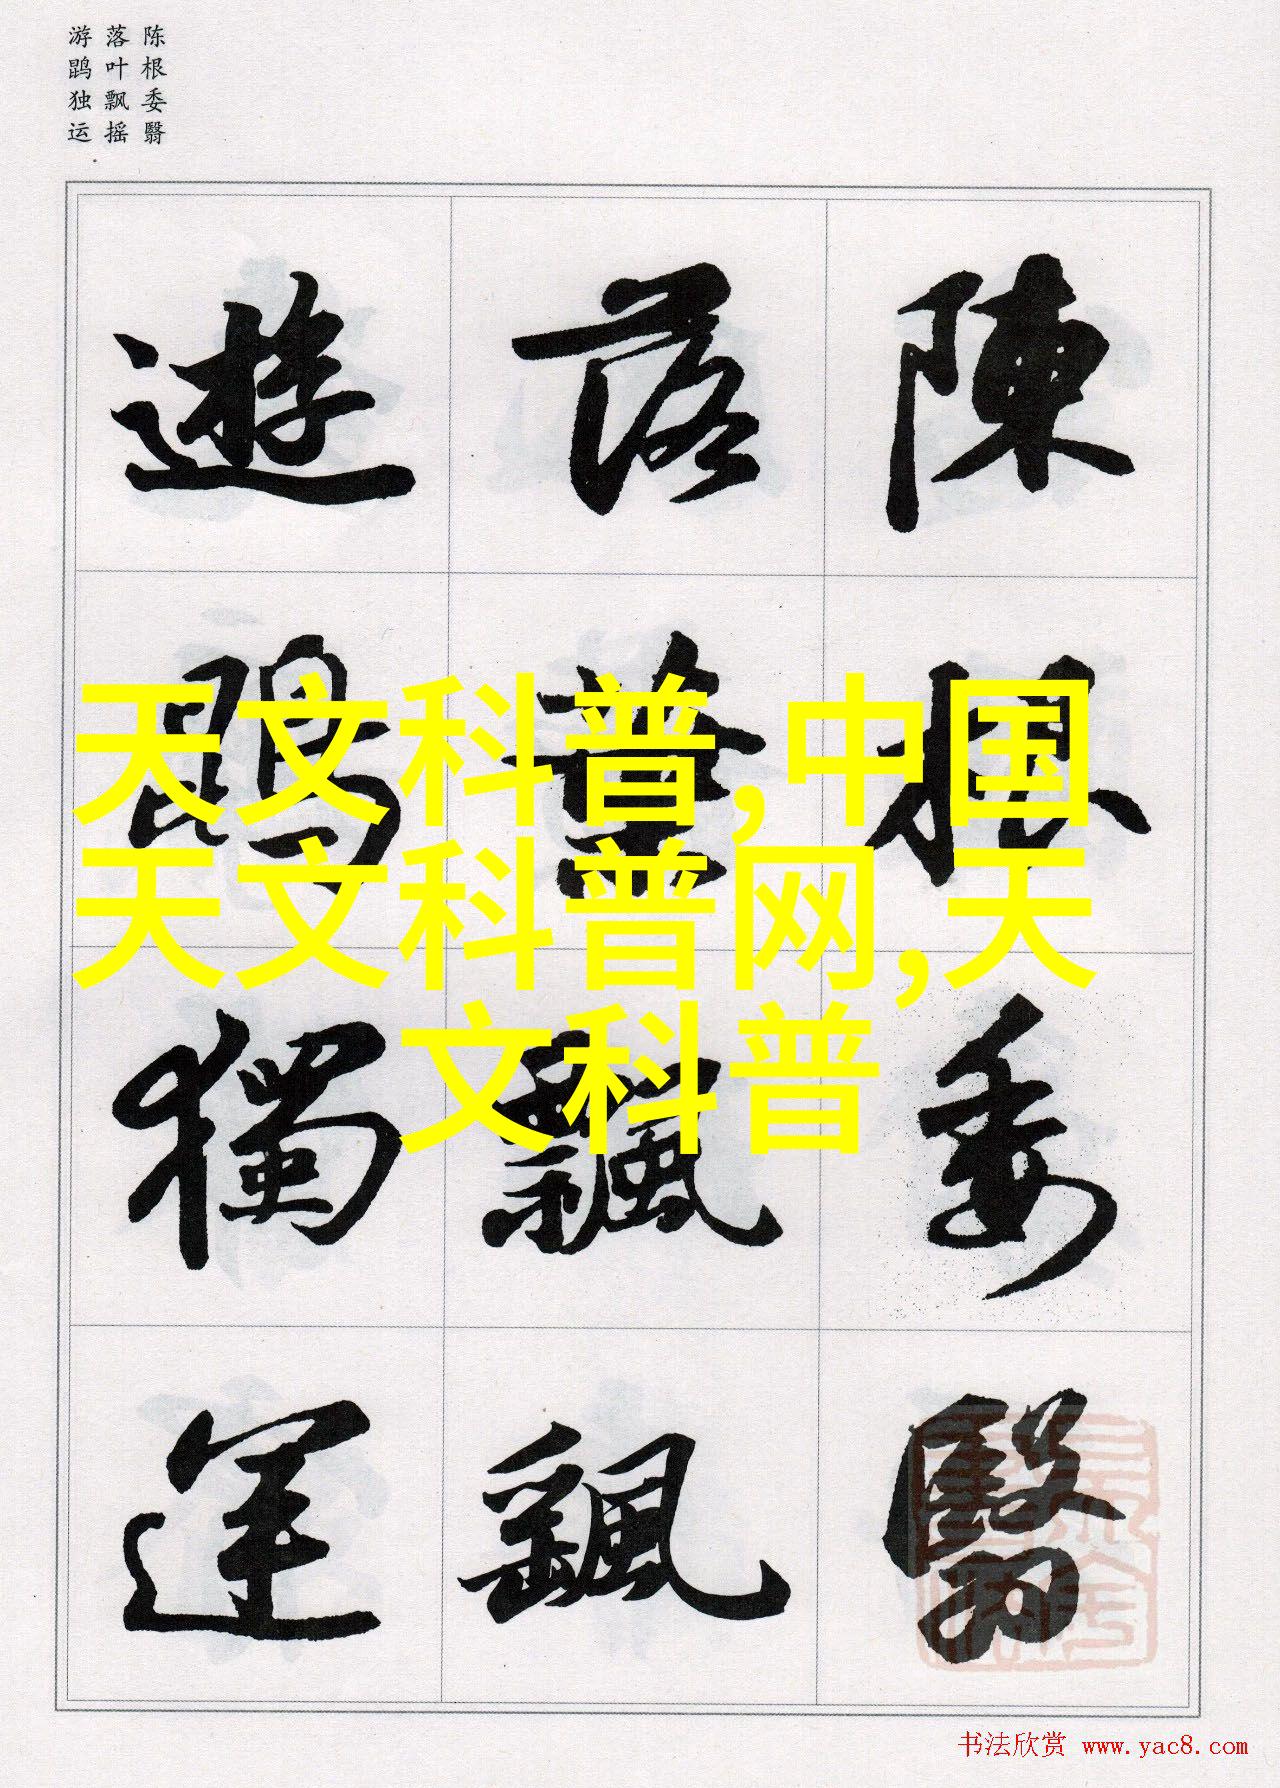 陈根委翳
落叶飘摇
游鹍独运
陳根委翳
落葉飄颻
遊鵾獨運
天文科普,中国
天文科普网,天
文科普
书法欣赏 www.yac8.com